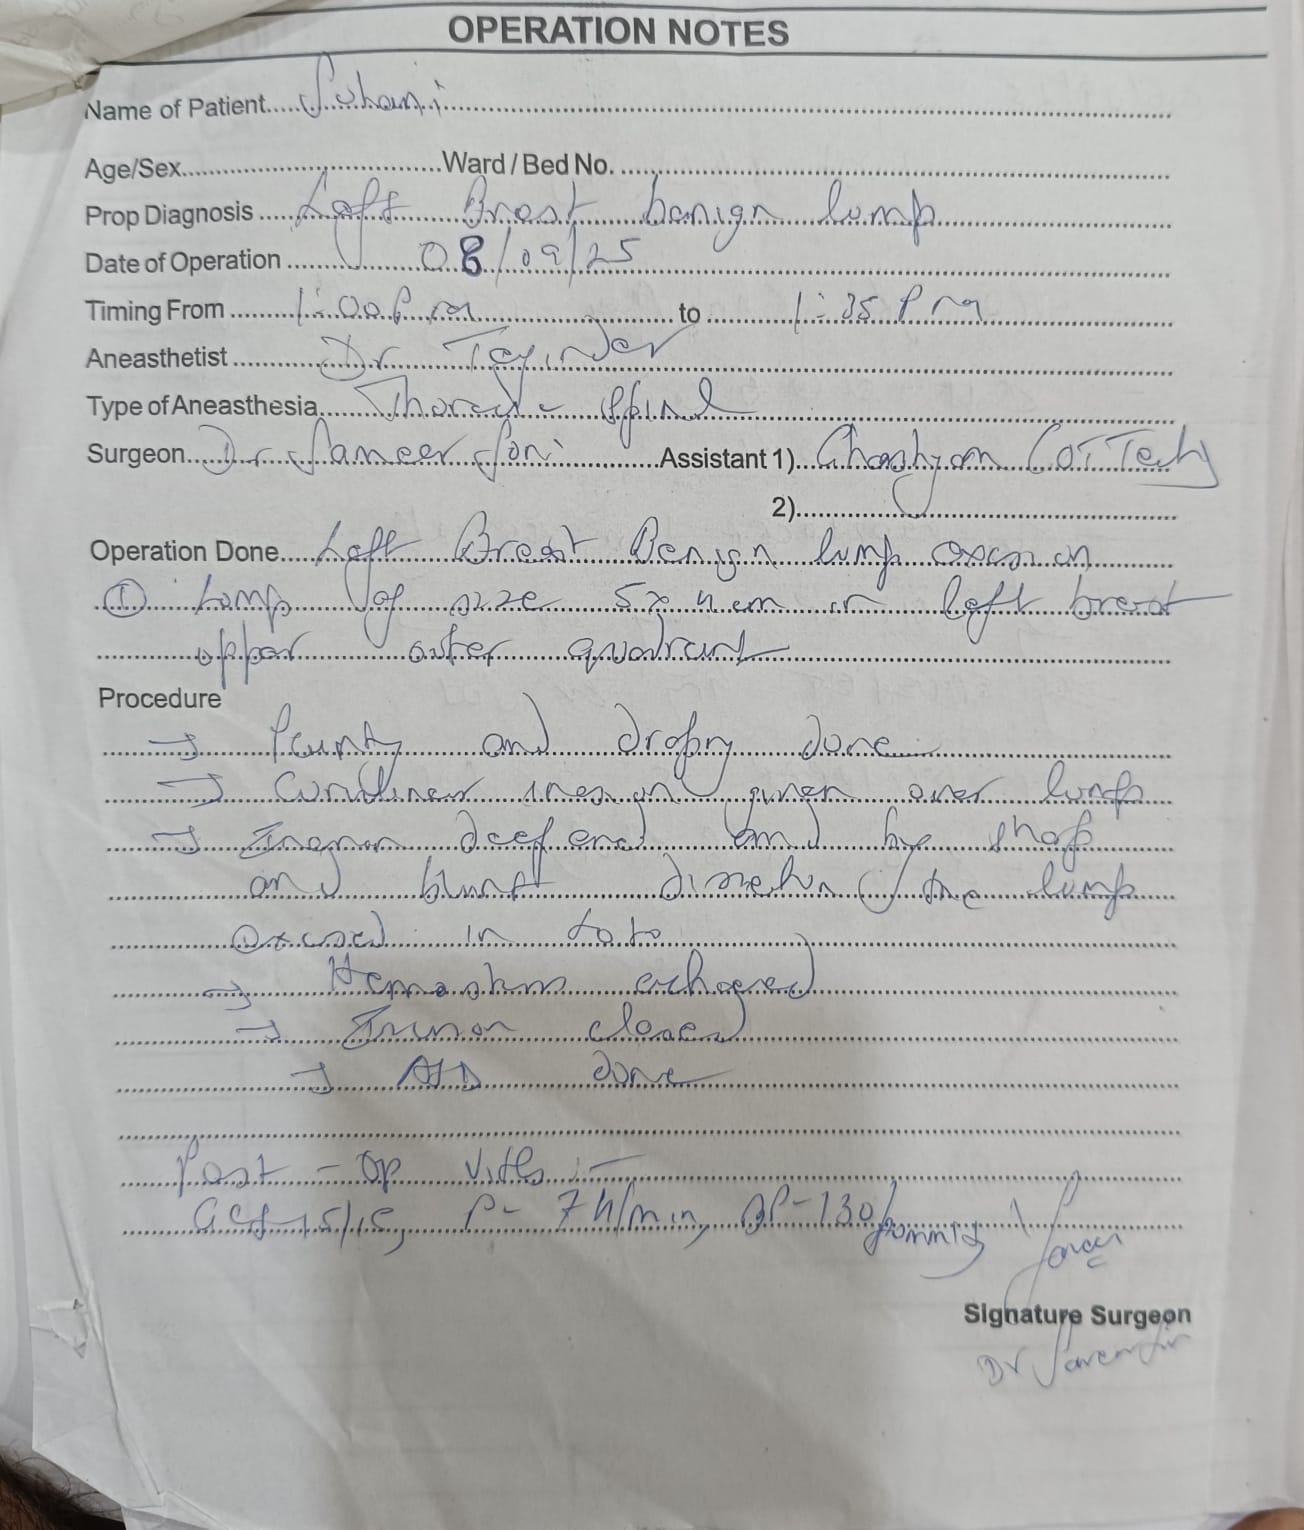 OPERATION NOTES
Name of Patient.....Suhani
Age/Sex..........Ward / Bed No. ..........
Prop Diagnosis.....Left Breast benign lump
Date of Operation.....08/09/25
Timing From.....1:00 Pm.....to.....1:35 Pm
Aneasthetist.....Dr Tejinder
Type of Aneasthesia.....Thoracic Spinal
Surgeon.....Dr. Sameer Soni.....Assistant 1).....(OT Tech)
2)..........
Operation Done.....Left Breast Benign lump excision
① Lump of size 5x4 cm in left breast
upper outer quadrant
Procedure
→ Painting and draping done
→ Curvilinear incision given over lump
→ Incision deepened and by sharp
and blunt dissection the lump
excised in toto
→ Hemostasis achieved
→ Incision closed
→ ASD done
Post-op Vitals :-
GCS-15/15, P- 74/min, BP-130/ mmHg
Signature Surgeon
Dr